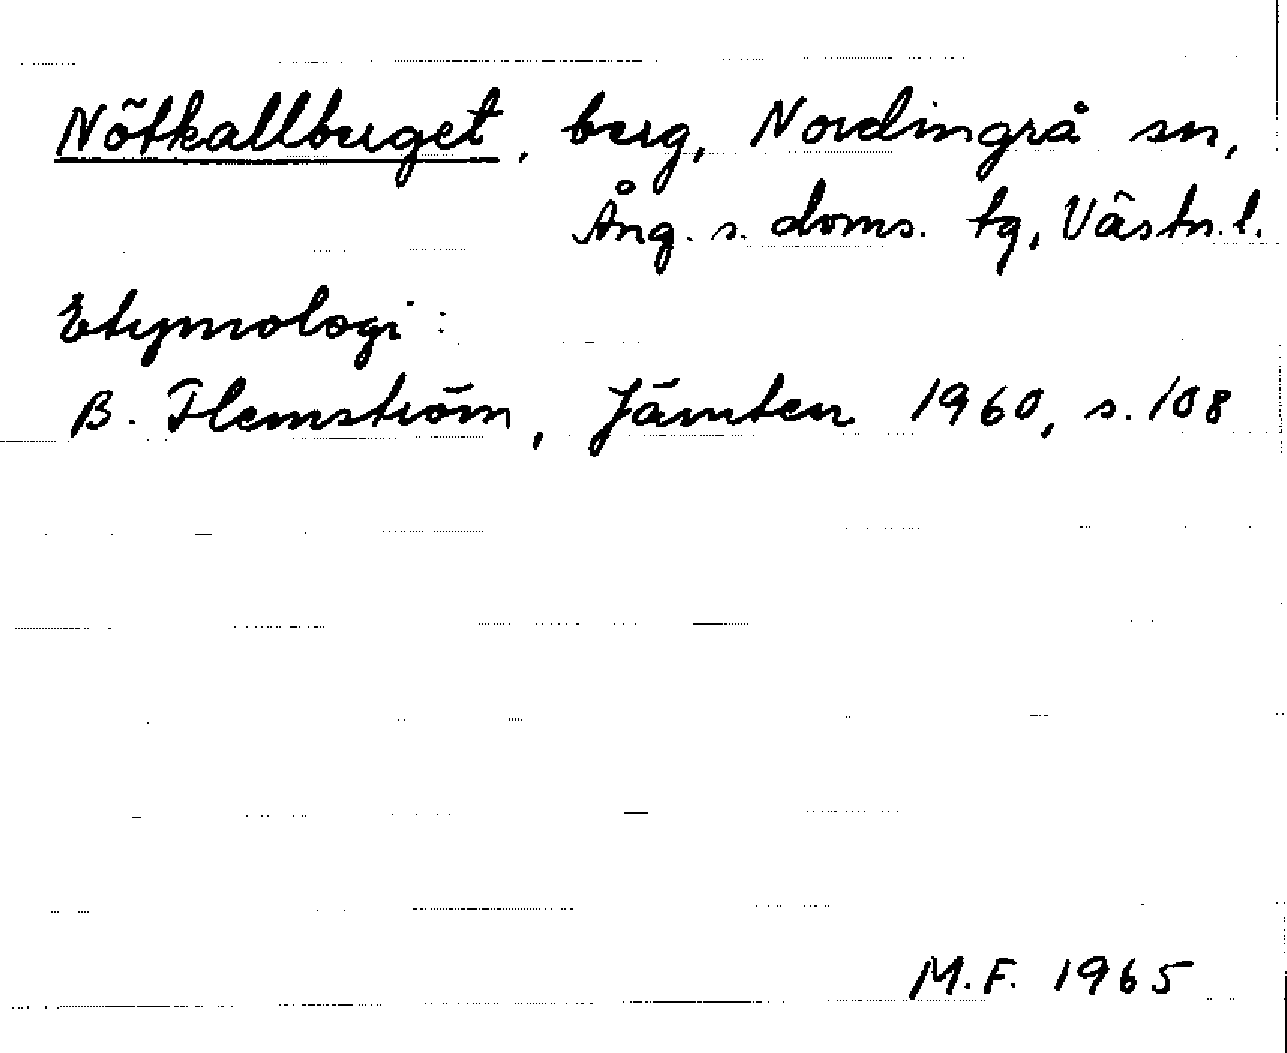 Nötkallberget, berg, Nordingrå sn,
Ång. s. doms. tg, Västn. l.
Etymologi:
B. Flemström, Jämten 1960, s. 108
M.F. 1965